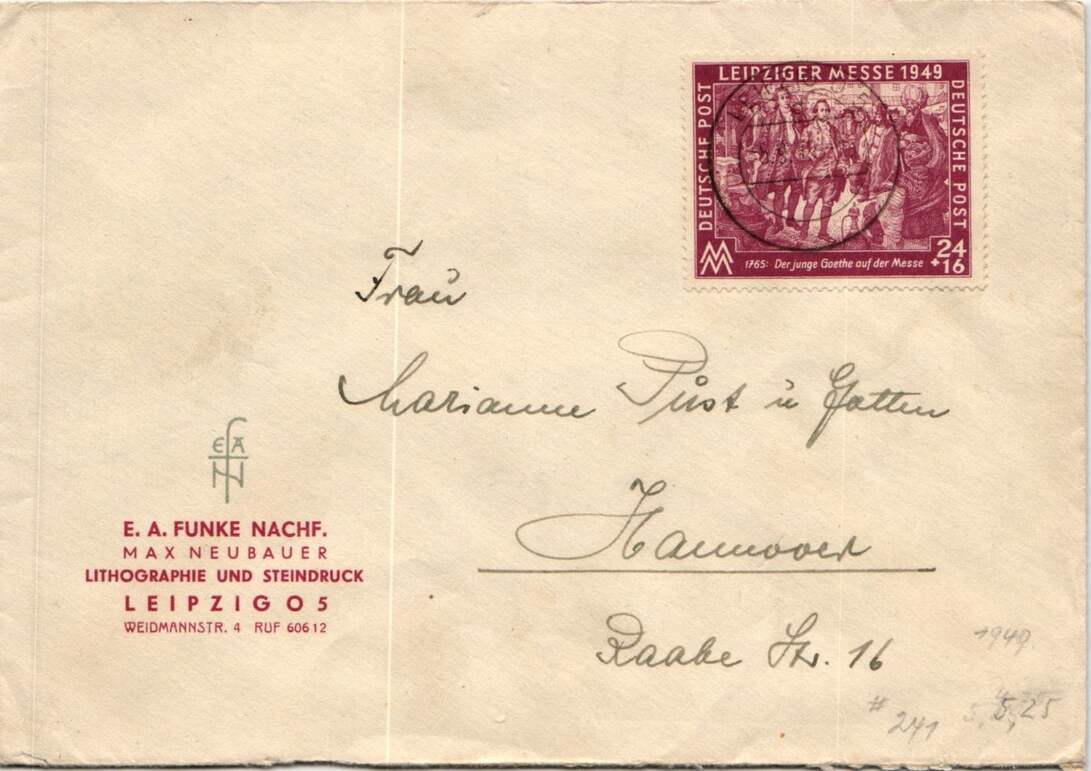 LEIPZIGER MESSE 1949
DEUTSCHE POST
DEUTSCHE POST
24
+16
1765: Der junge Goethe auf der Messe
Frau
Marianne Püst u Gatten
Hannover
Raabe Str. 16
E A
N
E. A. FUNKE NACHF.
MAX NEUBAUER
LITHOGRAPHIE UND STEINDRUCK
LEIPZIG O 5
WEIDMANNSTR. 4 RUF 60612
1949
# 241
5,25